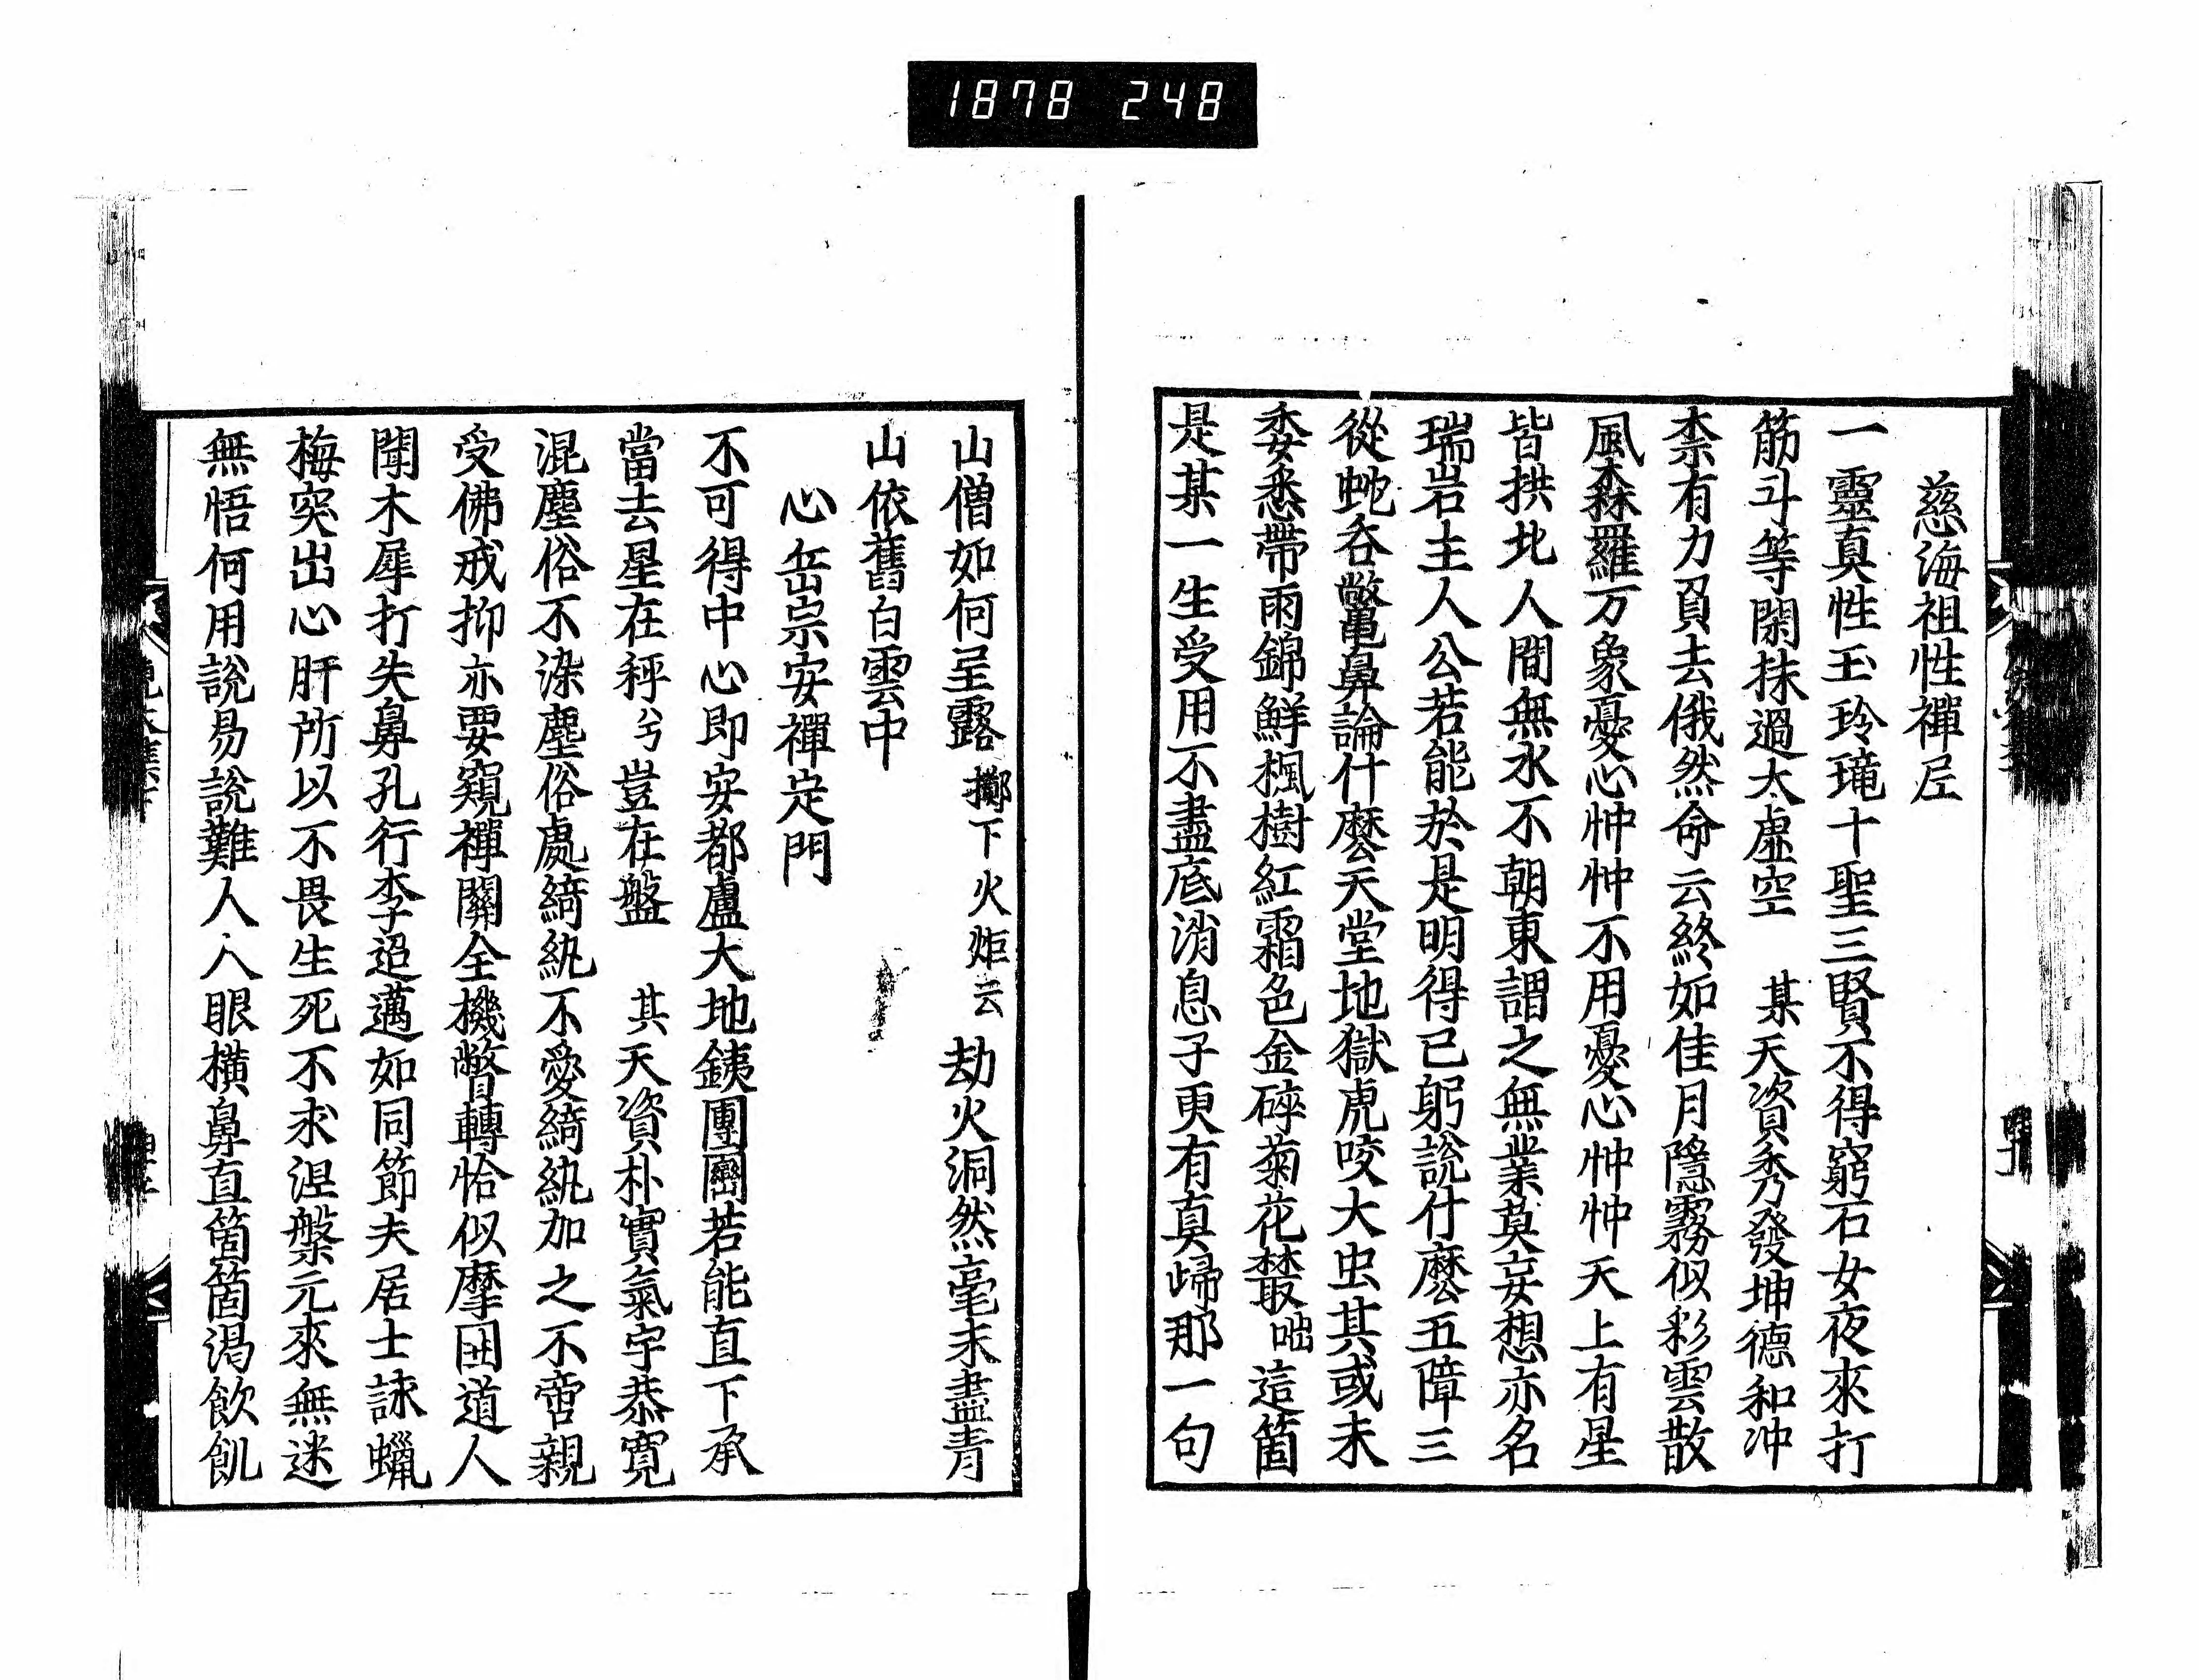 1878 248
慈海祖性禪尼
一靈真性玉玲瓏十聖三賢不得窮石女夜來打
筋斗等閑抹過太虛空 某天資秀發坤德和冲
柰有力負去俄然命云終如佳月隱霧似彩雲散
風森羅万象憂心忡忡不用憂心忡忡天上有星
皆拱北人間無水不朝東謂之無業莫妄想亦名
瑞岩主人公若能於是明得已躬說什麽五障三
從蛇吞鱉鼻論什麽天堂地獄虎咬大虫其或未
委悉帶雨錦鮮楓樹紅霜色金碎菊花叢咄這箇
是某一生受用不盡底消息子更有真歸那一句
山僧如何呈露擲下火炬云劫火洞然毫末盡青
山依舊白雲中
心岳宗安禪定門
不可得中心即安都盧大地銕團圝若能直下承
當去星在秤兮豈在盤 其天資朴實氣宇恭寬
混塵俗不染塵俗處綺紈不愛綺紈加之不啻親
受佛戒抑亦要窺禪關全機瞥轉恰似摩困道人
聞木犀打失鼻孔行李迢邁如同節夫居士詠蠟
梅突出心肝所以不畏生死不求涅槃元來無迷
無悟何用說易說難人人眼橫鼻直箇箇渴飲飢